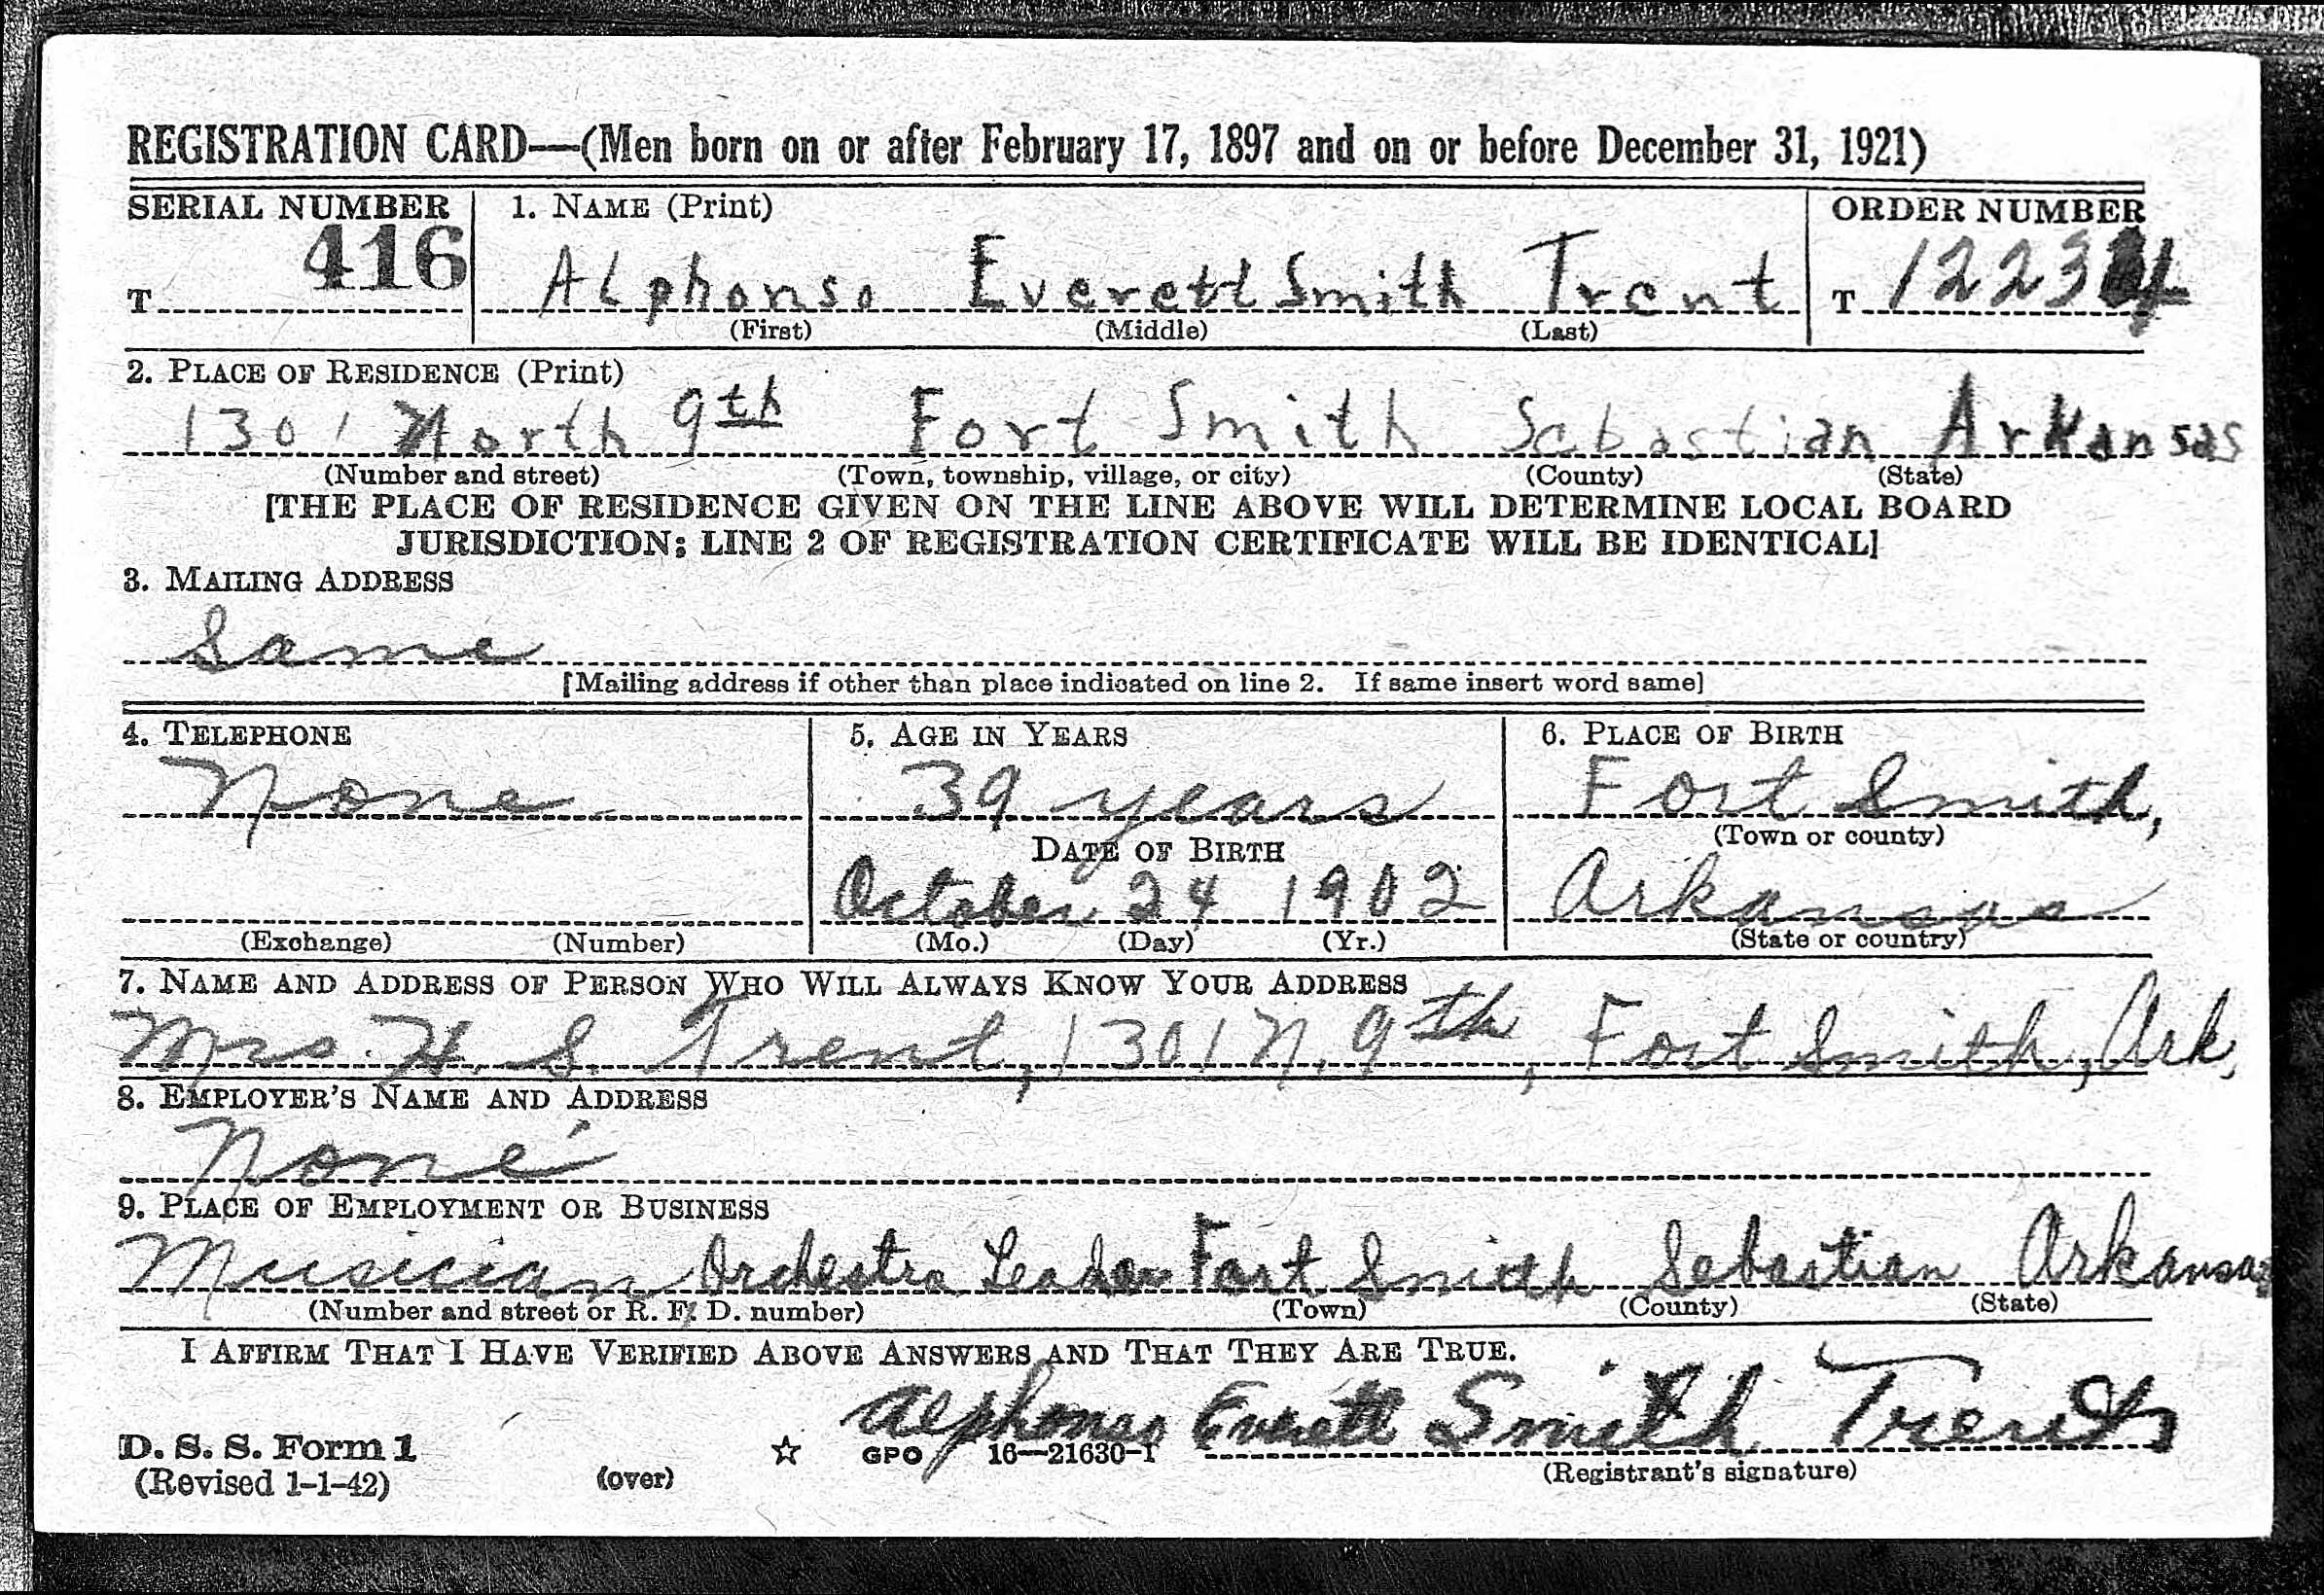 REGISTRATION CARD—(Men born on or after February 17, 1897 and on or before December 31, 1921)
SERIAL NUMBER 1. NAME (Print) ORDER NUMBER
T 416 Alphonso Everett Smith Trent T 12234
(First) (Middle) (Last)
2. PLACE OF RESIDENCE (Print)
1301 North 9th Fort Smith Sebastian Arkansas
(Number and street) (Town, township, village, or city) (County) (State)
[THE PLACE OF RESIDENCE GIVEN ON THE LINE ABOVE WILL DETERMINE LOCAL BOARD
JURISDICTION; LINE 2 OF REGISTRATION CERTIFICATE WILL BE IDENTICAL]
3. MAILING ADDRESS
Same
[Mailing address if other than place indicated on line 2. If same insert word same]
4. TELEPHONE 5. AGE IN YEARS 6. PLACE OF BIRTH
None 39 years Fort Smith,
DATE OF BIRTH (Town or county)
October 24 1902 Arkansas
(Exchange) (Number) (Mo.) (Day) (Yr.) (State or country)
7. NAME AND ADDRESS OF PERSON WHO WILL ALWAYS KNOW YOUR ADDRESS
Mrs. H. S. Trent, 1301 N. 9th, Fort Smith, Ark,
8. EMPLOYER'S NAME AND ADDRESS
None
9. PLACE OF EMPLOYMENT OR BUSINESS
Musician Orchestra Leader Fort Smith Sebastian Arkansas
(Number and street or R. F. D. number) (Town) (County) (State)
I AFFIRM THAT I HAVE VERIFIED ABOVE ANSWERS AND THAT THEY ARE TRUE.
Alphonso Everett Smith Trent
D. S. S. Form 1 ☆ GPO 16—21630-1
(Revised 1-1-42) (over) (Registrant's signature)